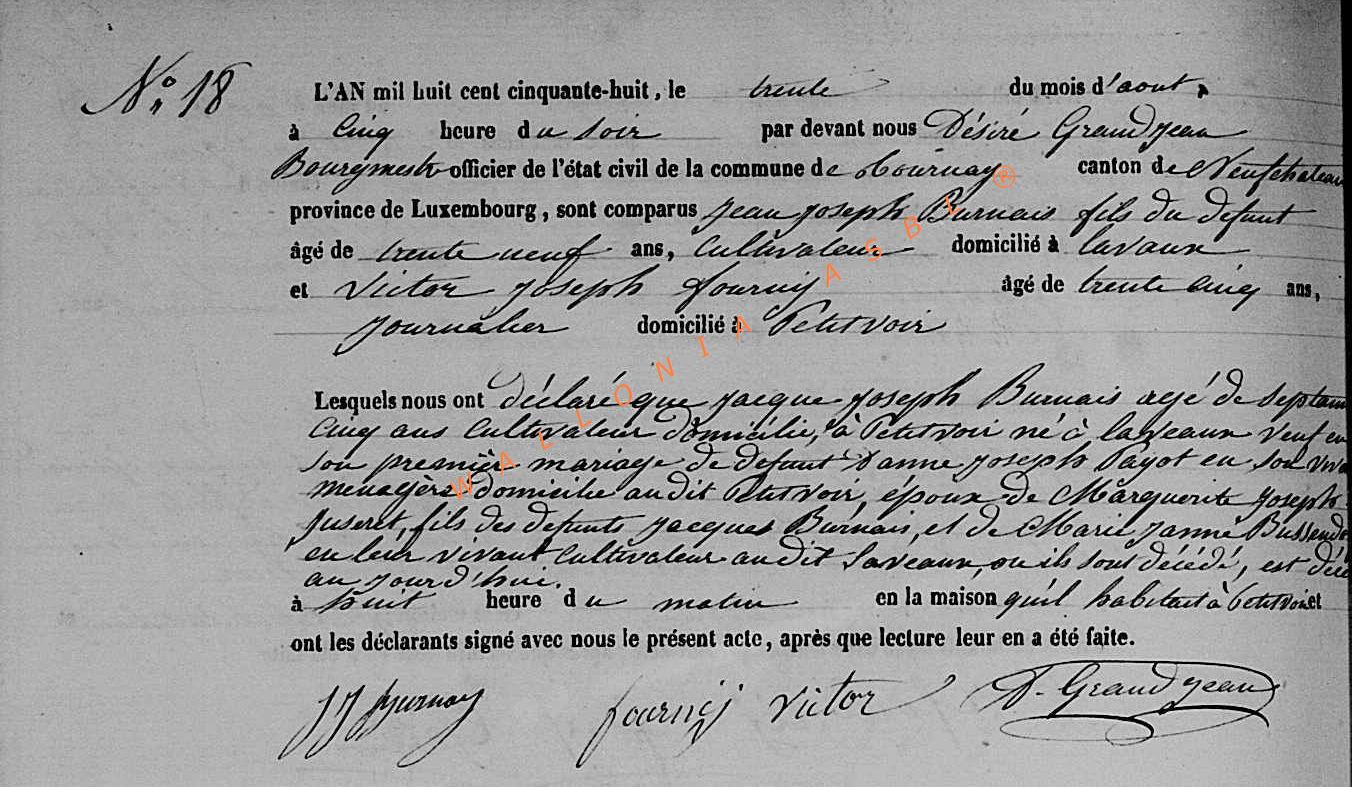 N° 18
L'AN mil huit cent cinquante-huit, le trente du mois d'aout,
à Cinq heure du soir par devant nous Désiré Grandjean
Bourgmestre officier de l'état civil de la commune de Tournay canton de Neufchateau
province de Luxembourg, sont comparus Jean joseph Burnais fils du defunt
âgé de trente neuf ans, Cultivateur domicilié à lavaux
et Victor joseph fourny âgé de trente cinq ans,
journalier domicilié à Petitvoir
Lesquels nous ont déclaré que jacque joseph Burnais agé de septante
Cinq ans Cultivateur domicilié, à Petitvoir né à laveaux veuf en
son premièr mariage de defunt D'anne joseph Payot en son viva
menagère domicilie au dit Petitvoir, époux de Marguerite joseph
juseret, fils des defunts jacques Burnais, et de Marie janne
en leur vivant Cultivateur au dit laveaux, ou ils sont décédé, est décé
au jourd'hui.
à huit heure du matin en la maison qu'il habitait à Petitvoir et
ont les déclarants signé avec nous le présent acte, après que lecture leur en a été faite.
JJ Burnay fourny Victor D. Grandjean
WALLONIA ASBL ®